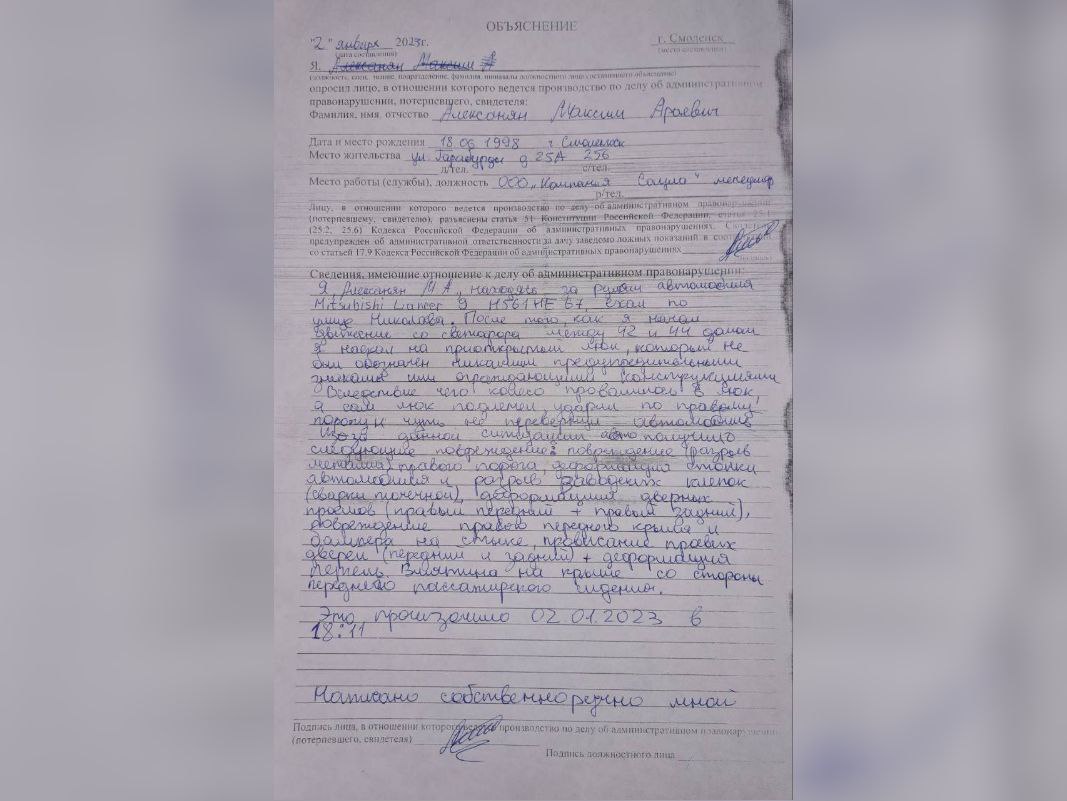 ОБЪЯСНЕНИЕ
"2" января 2023г.
г. Смоленск
(дата составления)
(место составления)
Я, Алексанян Максим А
опросил лицо, в отношении которого ведется производство по делу об административном
правонарушении, потерпевшего, свидетеля:
Фамилия, имя, отчество Алексанян Максим Араевич
Дата и место рождения 18 06 1998 г Смоленск
Место жительства ул. д 25А 256
д/тел. с/тел.
Место работы (службы), должность ООО "Компания " менеджер
р/тел.
Лицу, в отношении которого ведется производство по делу об административном правонарушении
(потерпевшему, свидетелю), разъяснены статья 51 Конституции Российской Федерации, статья 25.1
(25.2, 25.6) Кодекса Российской Федерации об административных правонарушениях. Свидетель
предупрежден об административной ответственности за дачу заведомо ложных показаний в соответствии
со статьей 17.9 Кодекса Российской Федерации об административных правонарушениях
Сведения, имеющие отношение к делу об административном правонарушении:
Я Алексанян М А, находясь за рулём автомобиля
Mitsubishi Lancer 9 Н561НЕ 67, ехал по
улице Николаева. После того, как я начал
движение со светофора между 42 и 44 домом
я наехал на приоткрытый люк, который не
был обозначен никакими предупредительными
знаками или ограждающими конструкциями
Вследствие чего колесо провалилось в люк,
а сам люк подлетел, ударил по правому
порогу и чуть не перевернул автомобиль
Из-за данной ситуации авто получило
следующие повреждение: повреждение (разрыв
металла) правого порога, деформация стойки
автомобиля и разрыв заводских клепок
(сварки точечной), деформация дверных
проемов (правый передний + правый задний),
повреждение правого переднего крыла и
бампера на стыке, провисание правых
дверей (передний и задний) + деформация
петель. Вмятина на крыше со стороны
переднего пассажирского сидения.
Это произошло 02.01.2023 в
18:11
Написано собственноручно мной
Подпись лица, в отношении которого ведется производство по делу об административном правонарушении
(потерпевшего, свидетеля)
Подпись должностного лица